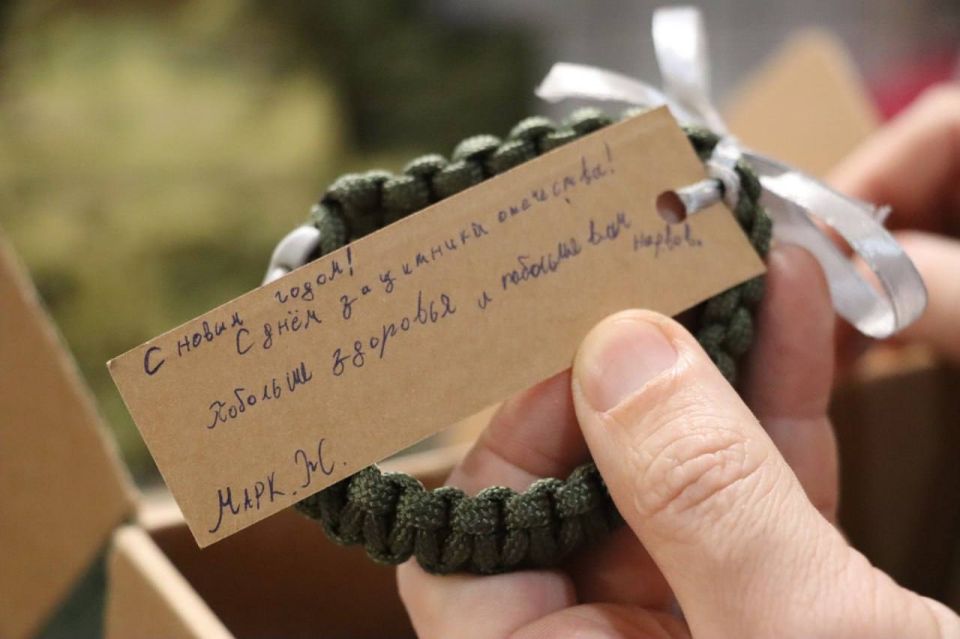 С новым годом!
С днём защитника отечества!
Побольше здоровья и побольше вам
нервов.
МАРК. Ж.